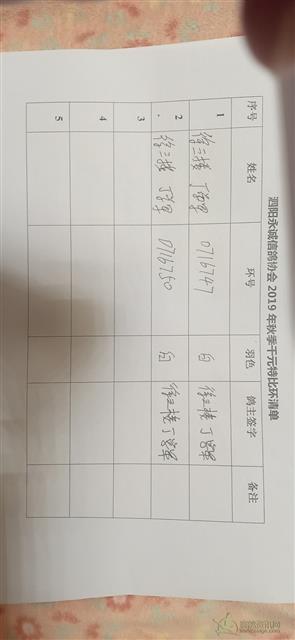 泗阳永诚信鸽协会2019年秋季千元特比环清单
序号 姓名 环号 羽色 鸽主签字 备注
1 徐三楼 0716747 白 徐三楼
2 徐三楼 0716750 白 徐三楼
3
4
5